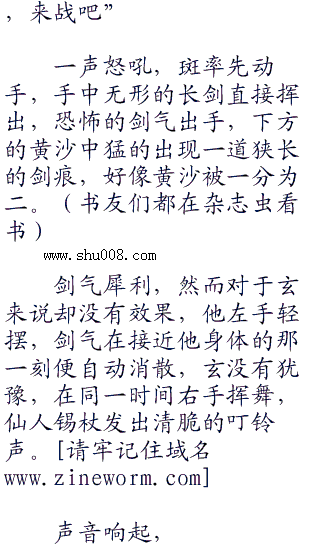 ，来战吧”
一声怒吼，斑率先动
手，手中无形的长剑直接挥
出，恐怖的剑气出手，下方
的黄沙中猛的出现一道狭长
的剑痕，好像黄沙被一分为
二。（书友们都在杂志虫看
书）
www.shu008.com
剑气犀利，然而对于玄
来说却没有效果，他左手轻
摆，剑气在接近他身体的那
一刻便自动消散，玄没有犹
豫，在同一时间右手挥舞，
仙人锡杖发出清脆的叮铃
声。[请牢记住域名
www.zineworm.com]
声音响起，